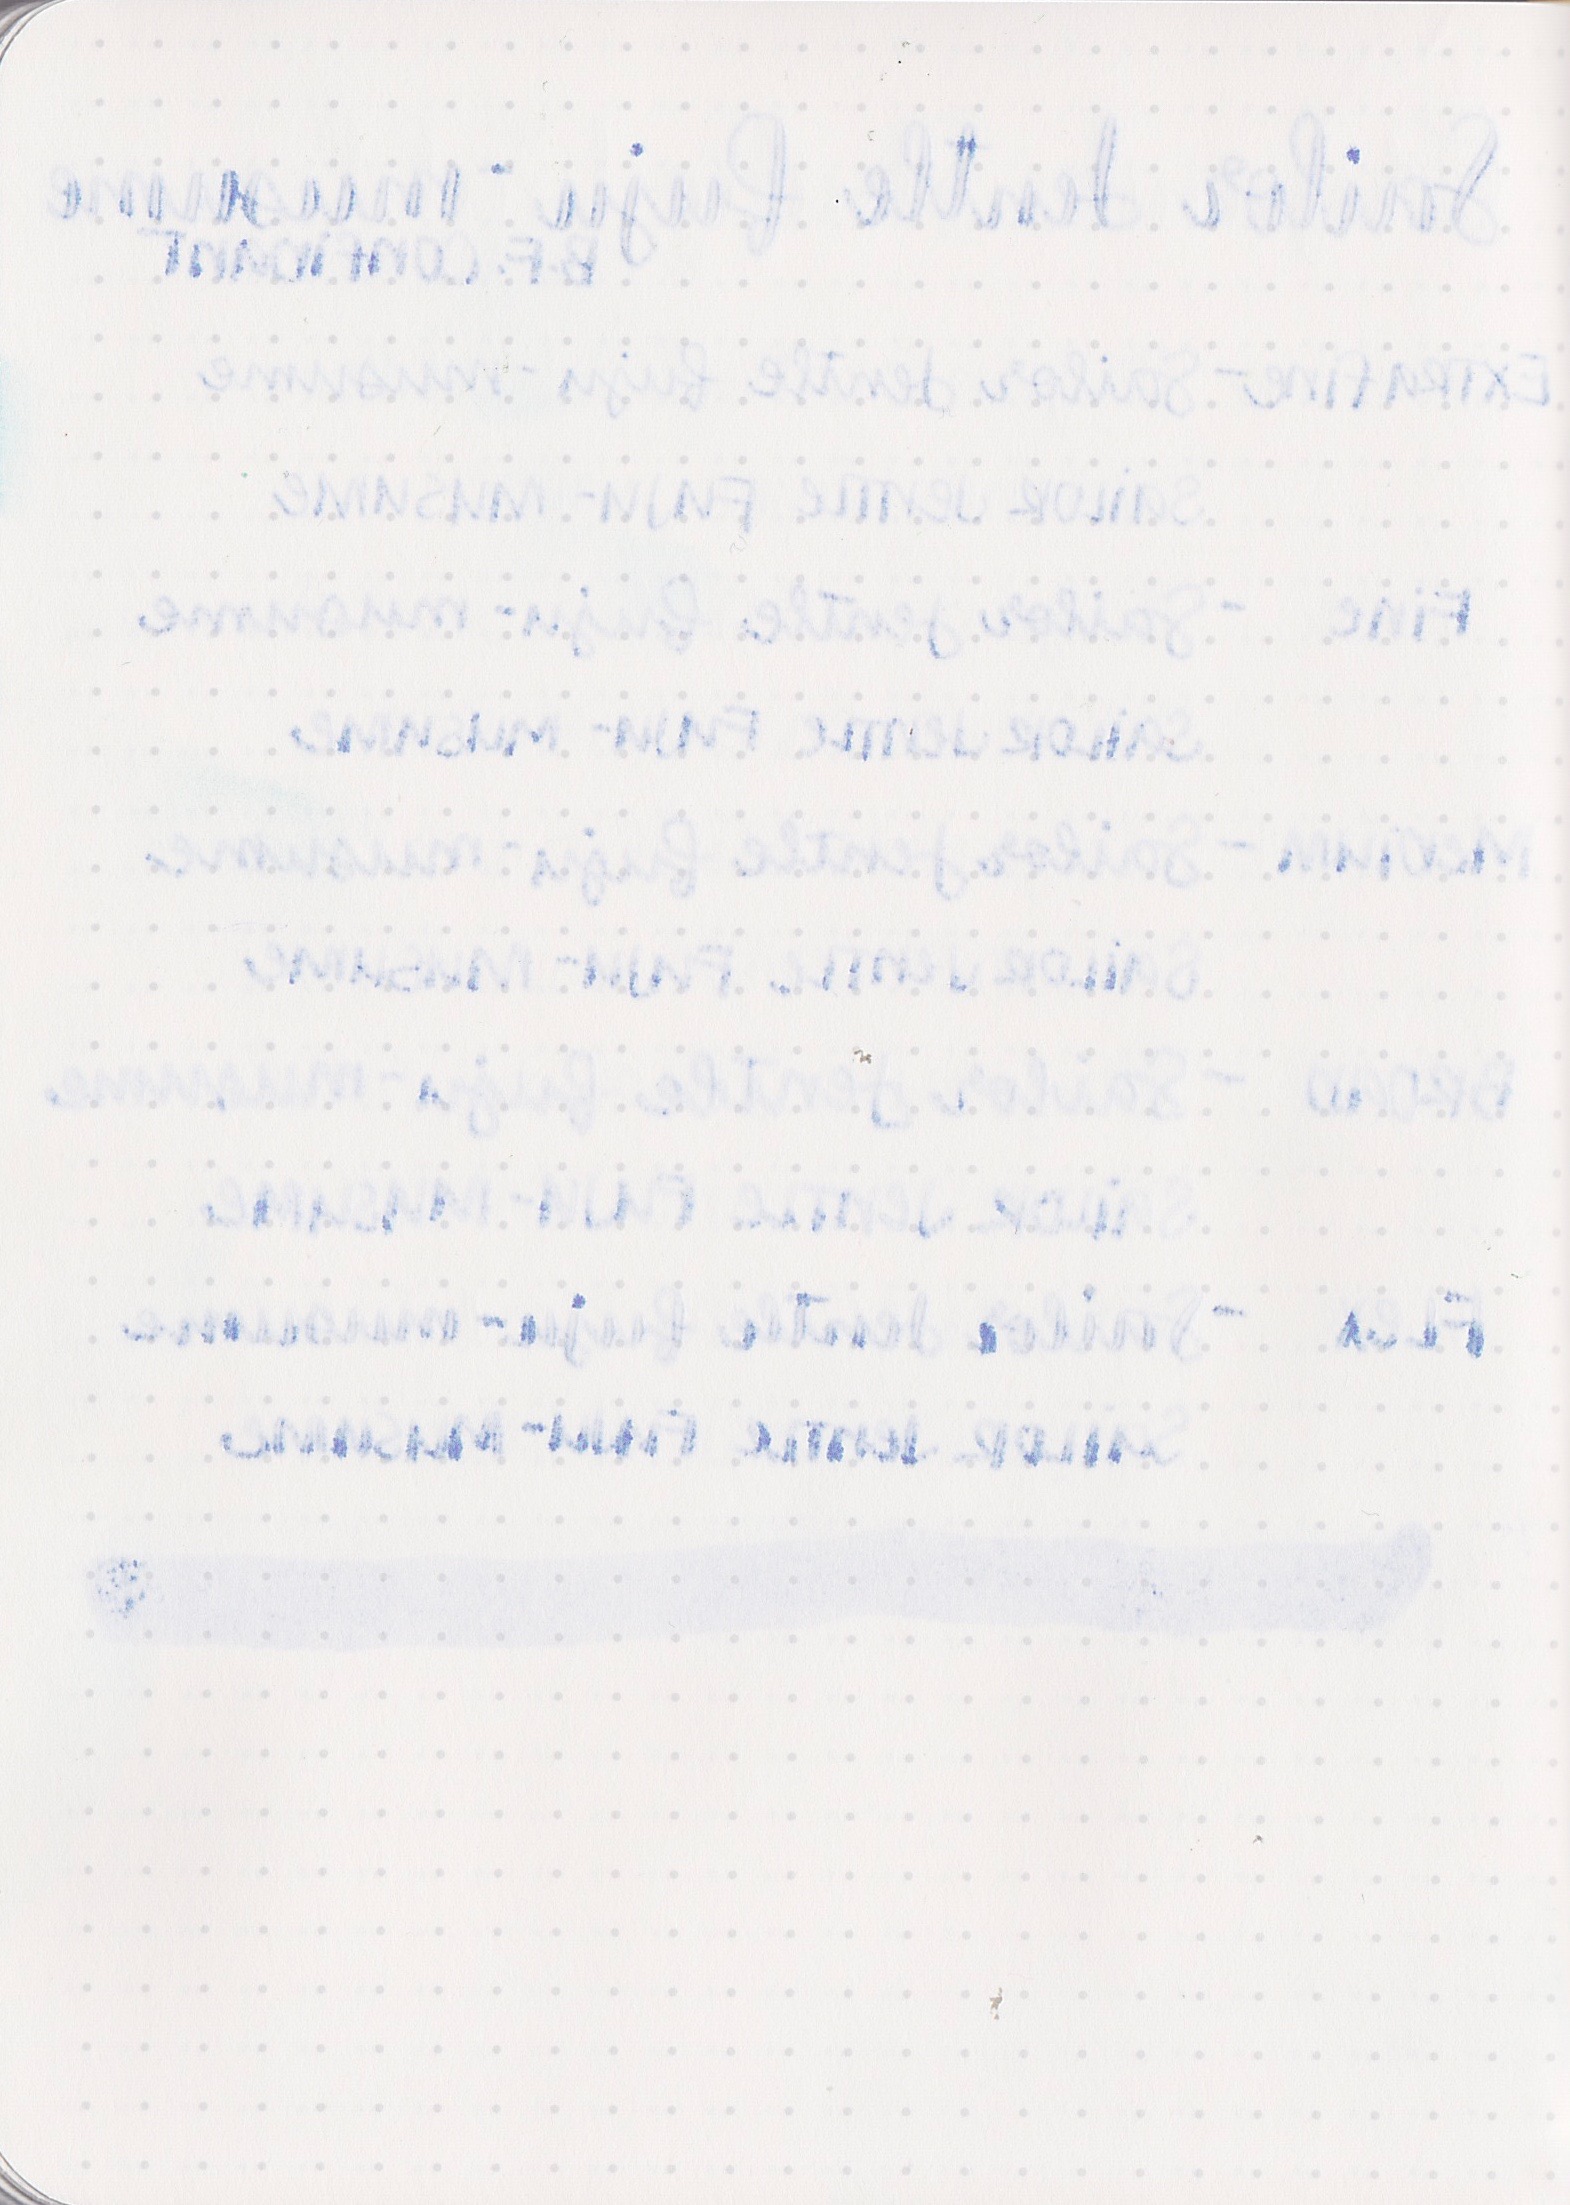 Sailor Jentle Fuju-musume
B.F. CONFIDANT
EXTRA FINE - Sailor Jentle Fuju-musume
SAILOR JENTLE FUJU-MUSUME
FINE - Sailor Jentle Fuju-musume
SAILOR JENTLE FUJU-MUSUME
MEDIUM - Sailor Jentle Fuju-musume
SAILOR JENTLE FUJU-MUSUME
BROAD - Sailor Jentle Fuju-musume
SAILOR JENTLE FUJU-MUSUME
FLEX - Sailor Jentle Fuju-musume
SAILOR JENTLE FUJU-MUSUME